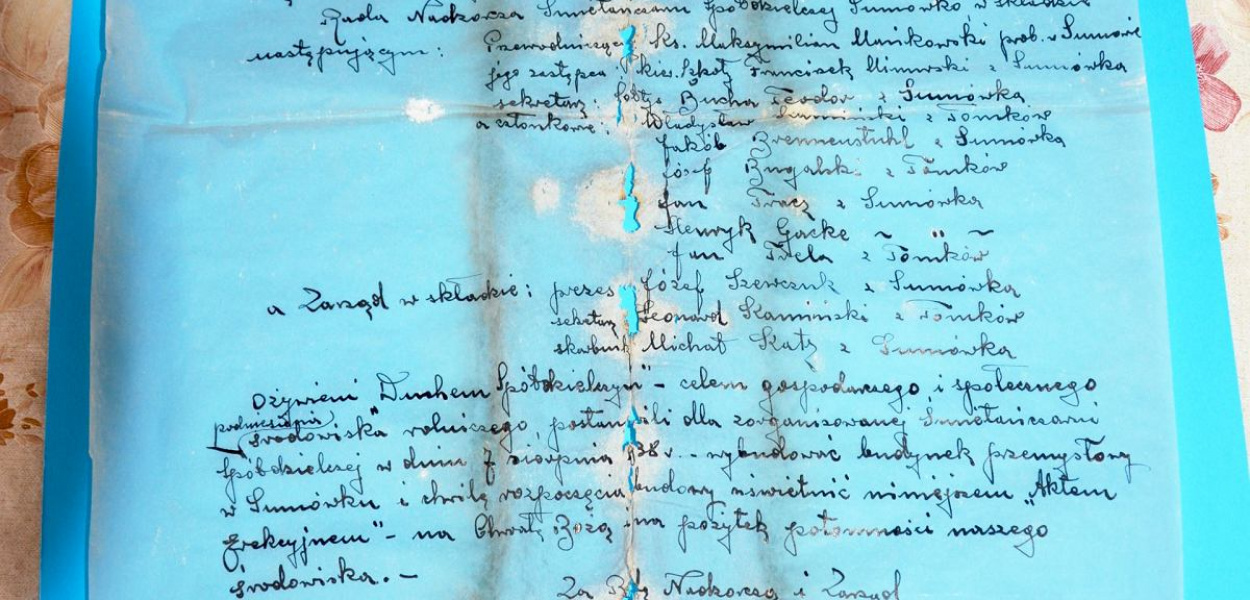 Rada Nadzorcza Śmietańczarni Spółdzielczej Sumówko w składzie
następującym: Przewodniczący ks. Maksymilian Mańkowski prob. z Sumowa
jego zastępca: kier. Szkoły Franciszek z Sumówka
sekretarz: sołtys Bucha Teodor z Sumówka
a członkowie: Władysław z Tomków
Jakób Brennenstuhl z Sumówka
Józef Bugalski z Tomków
Jan Tracz z Sumówka
Henryk Gacke ~ " ~
Jan Trela z Tomków
a Zarząd w składzie: prezes Józef Szewczuk z Sumówka
sekretarz Leonard Kamiński z Tomków
skarbnik Michał Katz z Sumówka
Ożywieni "Duchem Spółdzielczym" – celem gospodarczego i społecznego
podniesienia
środowiska rolniczego, postanowili dla zorganizowanej Śmietańczarni
Spółdzielczej w dniu 7 sierpnia 1938 r. – wybudować budynek przemysłowy
w Sumówku i chwilę rozpoczęcia budowy uświetnić niniejszem "Aktem
erekcyjnem" – na Chwałę Bożą i na pożytek potomności naszego
środowiska. –
Za Radę Nadzorczą i Zarząd